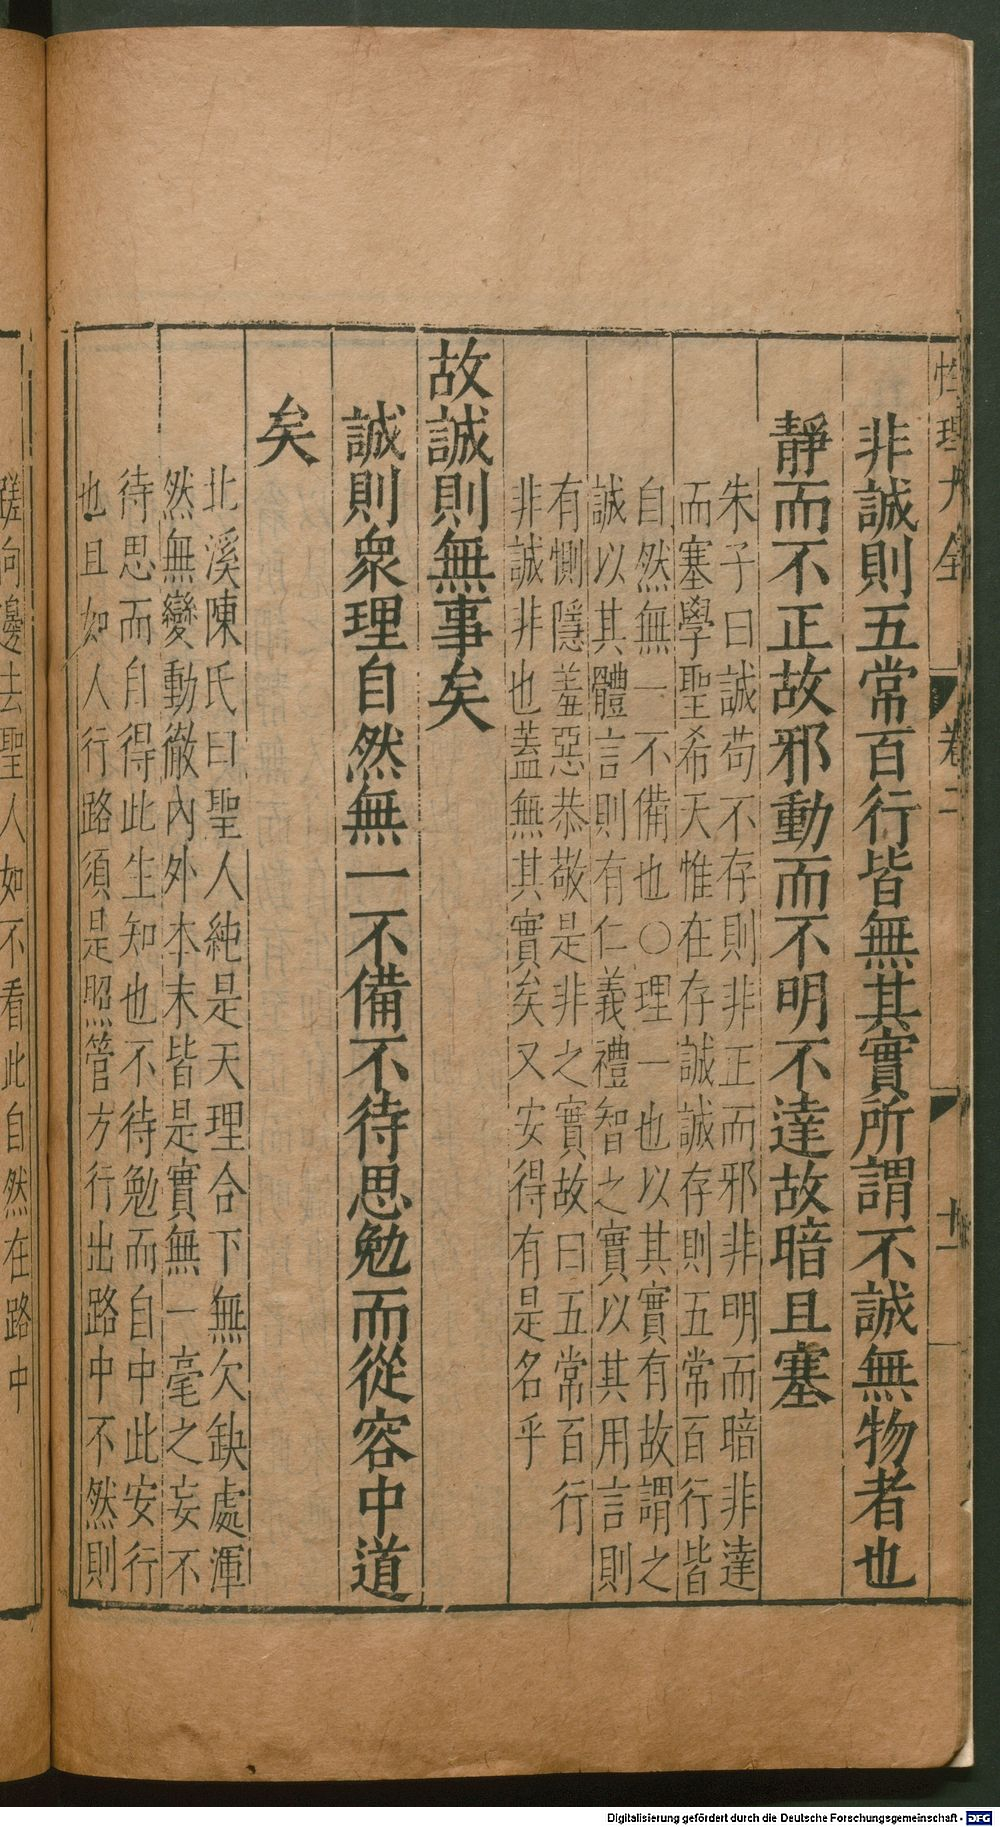 性理大全 卷二 十一
非誠則五常百行皆無其實所謂不誠無物者也
靜而不正故邪動而不明不達故暗且塞
朱子曰誠苟不存則非正而邪非明而暗非達
而塞學聖希天惟在存誠誠存則五常百行皆
自然無一不備也○理一也以其實有故謂之
誠以其體言則有仁義禮智之實以其用言則
有惻隱羞惡恭敬是非之實故曰五常百行
非誠非也蓋無其實矣又安得有是名乎
故誠則無事矣
誠則衆理自然無一不備不待思勉而從容中道
矣
北溪陳氏曰聖人純是天理合下無欠缺處渾
然無變動徹內外本末皆是實無一毫之妄不
待思而自得此生知也不待勉而自中此安行
也且如人行路須是照管方行出路中不然則
蹉向邊去聖人如不看此自然在路中
Digitalisierung gefördert durch die Deutsche Forschungsgemeinschaft - DFG